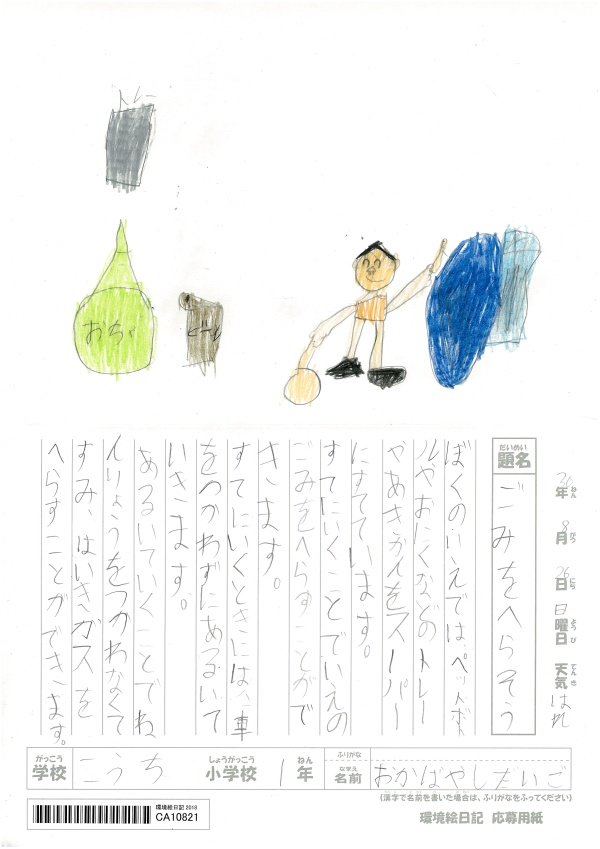 トレー
おちゃ
ビール
30年 8月 26日 日曜日 天気 はれ
ねん がつ にち ようび てんき
だいめい
題名 ごみをへらそう
ぼくのいえでは、ペットボト
ルやおにくなどのトレー
やあきカンをスーパー
にすてています。
すてにいくことでいえの
ごみをへらすことがで
きます。
すてにいくときには、車
をつかわずにあるいて
いきます。
あるいていくことでね
んりょうをつかわなくて
すみ、はいきガスを
へらすことができます。
がっこう しょうがっこう ねん ふりがな
学校 こうち 小学校 1年 なまえ 名前 おかばやしたいご
(漢字で名前を書いた場合は、ふりがなをふってください)
環境絵日記2018
CA10821
環境絵日記 応募用紙